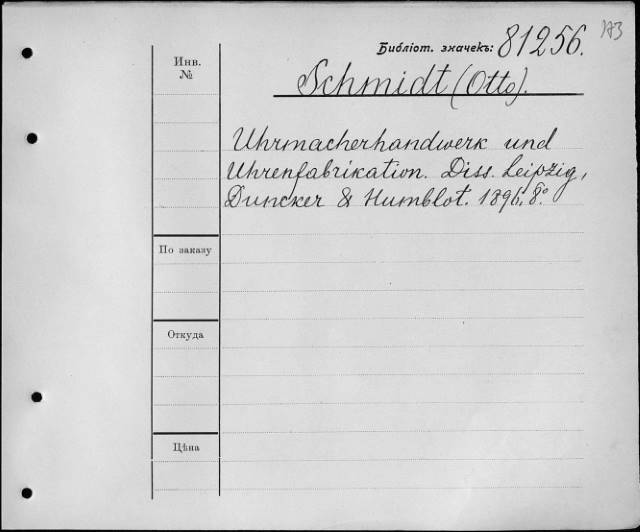 Библіот. значекъ: 81256.
Инв. №
Schmidt (Otto).
Uhrmacherhandwerk und
Uhrenfabrikation. Diss. Leipzig,
Duncker & Humblot. 1896. 8º.
По заказу
Откуда
Цѣна